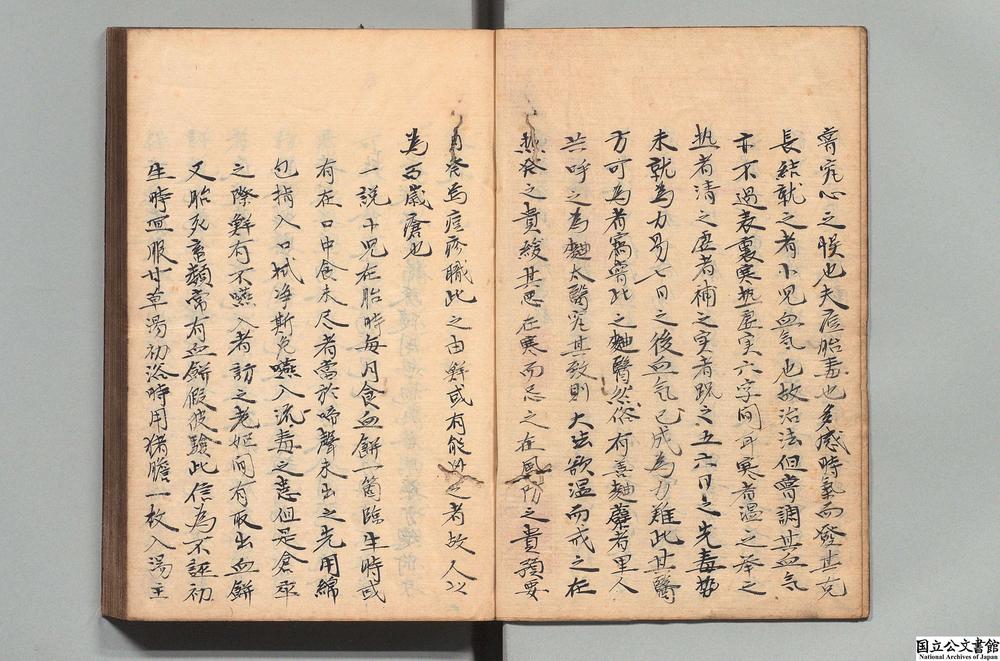 嘗究心之候也夫痘胎毒也多感時氣而發其充
長結就之者小兒血气也故治法但嘗調其血气
亦不過表裏寒热虛实六字间耳寒者温之举之
热者清之虛者補之实者踈之五六日之先毒势
未就為力易七日之後血气已成為力难此其醫
方可為者寓嘗比之麯醫然俗有善麯蘖者里人
共呼之為麯太醫究其效則大法欲温而戒之在
热發之貴緩其忌在寒而忌之在風防之貴預要
自發為痘疹職此之由鮮或有能之者故人以
為百歲瘡也
一説小児在胎時每月食血餅一箇臨生時或
有在口中食未尽者當於啼聲未出之先用綿
包指入口拭净斯免嚥入流毒之患但是倉卒
之際鮮有不嚥入者訪之老姬间有取出血餅
又胎死畜類常有血餅假彼驗此信為不誣初
生時宜服甘草湯初浴時用猪膽一枚入湯主
国立公文書館
National Archives of Japan